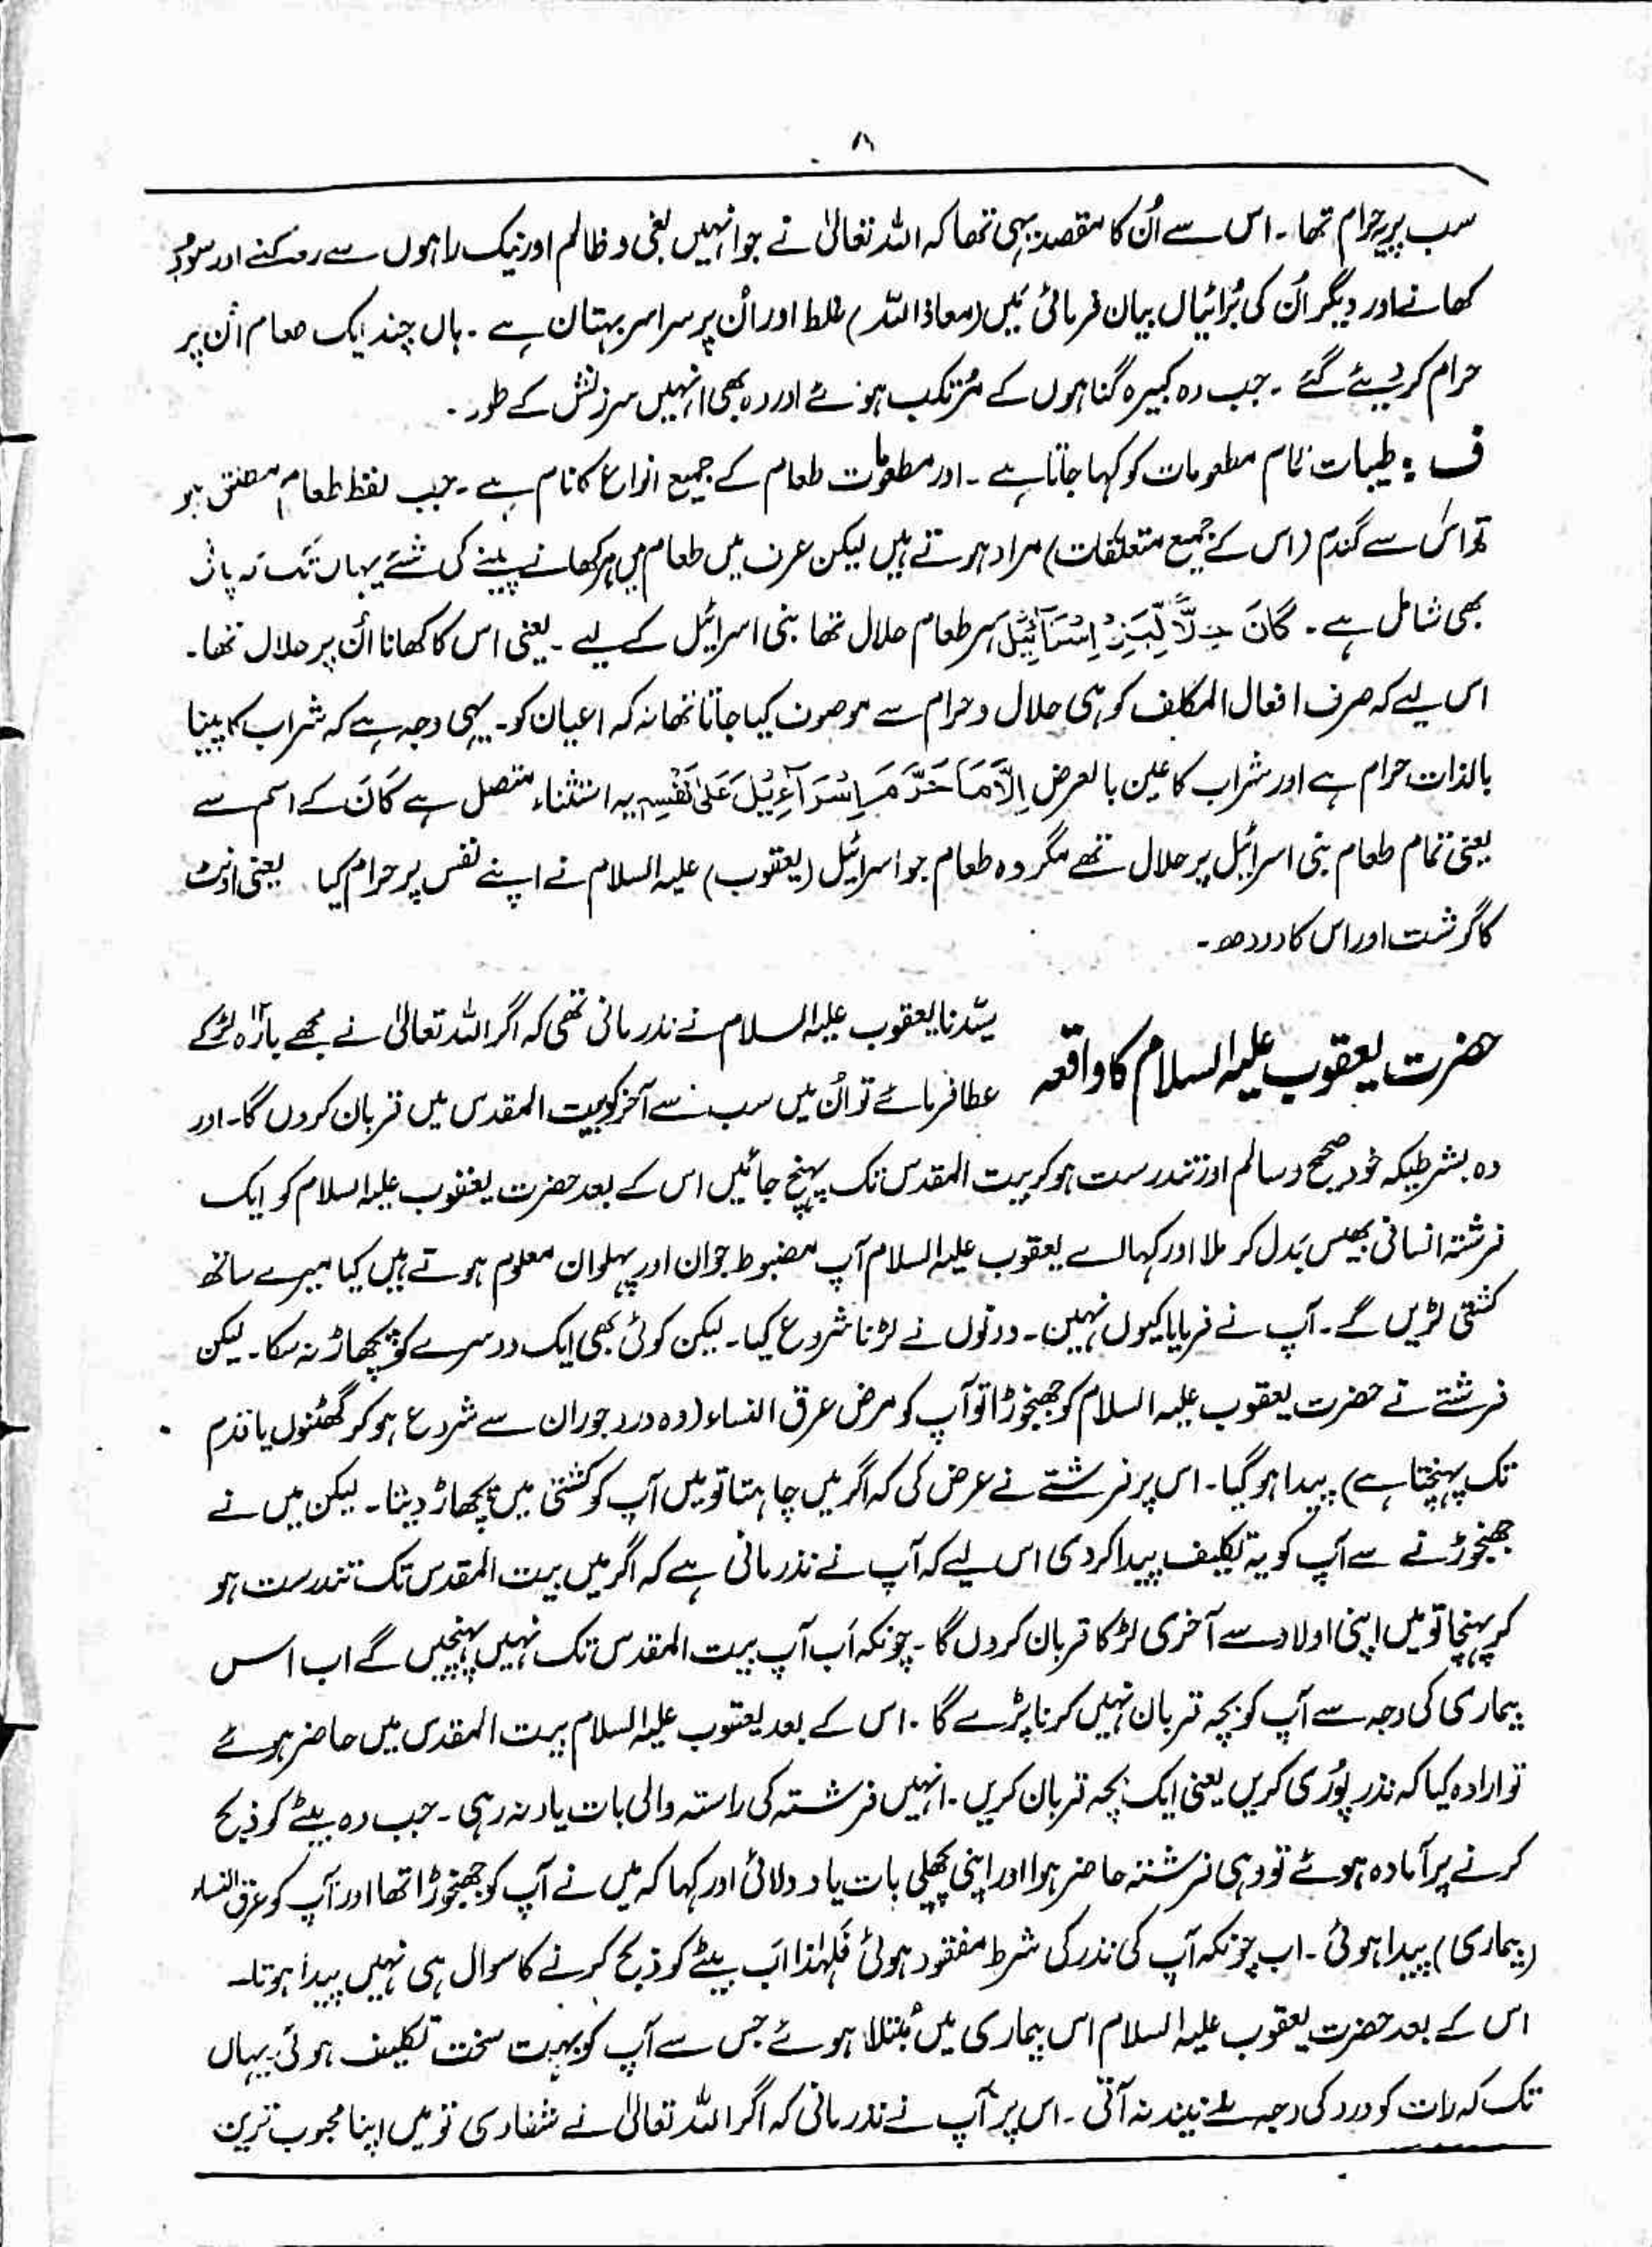 ۸
سب پر حرام تھا۔ اس سے اُن کا مقصد یہی تھا کہ اللہ تعالیٰ نے جو انہیں بغی و ظالم اور نیک راہوں سے روکنے اور سود
کھانے اور دیگر اُن کی بُرائیاں بیان فرمائی ہَیں (معاذ اللہ) غلط اور اُن پر سراسر بہتان ہے۔ ہاں چند ایک طعام اُن پر
حرام کر دیئے گئے۔ جب وہ کبیرہ گناہوں کے مُرتکب ہوئے اور وہ بھی انہیں سرزنش کے طور۔
ف : طیبات تمام مطعومات کو کہا جاتا ہے۔ اور مطعومات طعام کے جمیع انواع کا نام ہے۔ جب لفظ طعام مطلق ہو
تو اس سے گندم (اس کے جمیع متعلقات) مراد ہوتے ہیں لیکن عرف میں طعام میں ہر کھانے پینے کی شئے یہاں تک کہ پانی
بھی شامل ہے۔ كَانَ حِلًّا لِّبَنِیْۤ اِسْرَآئِیْلَ ہر طعام حلال تھا بنی اسرائیل کے لیے۔ یعنی اس کا کھانا اُن پر حلال تھا۔
اس لیے کہ صرف افعال المکلف کو ہی حلال و حرام سے موصوف کیا جاتا تھا نہ کہ اعیان کو۔ یہی وجہ ہے کہ شراب کا پینا
بالذات حرام ہے اور شراب کا عین بالعرض اِلَّا مَا حَرَّمَ اِسْرَآءِیْلُ عَلٰی نَفْسِهٖ یہ استثناء متصل ہے کَانَ کے اسم سے
یعنی تمام طعام بنی اسرائیل پر حلال تھے مگر وہ طعام جو اسرائیل (یعقوب) علیہ السلام نے اپنے نفس پر حرام کیا یعنی اونٹ
کا گوشت اور اس کا دودھ۔
حضرت یعقوب علیہ السلام کا واقعہ
سیّدنا یعقوب علیہ السلام نے نذر مانی تھی کہ اگر اللہ تعالیٰ نے مجھے بارہ لڑکے
عطا فرمائے تو اُن میں سب سے آخر کو بیت المقدس میں قربان کر دوں گا۔ اور
وہ بشرطیکہ خود صحیح و سالم اور تندرست ہو کر بیت المقدس تک پہنچ جائیں اس کے بعد حضرت یعقوب علیہ السلام کو ایک
فرشتہ انسانی بھیس بدل کر ملا اور کہا اے یعقوب علیہ السلام آپ مضبوط جوان اور پہلوان معلوم ہوتے ہیں کیا میرے ساتھ
کشتی لڑیں گے۔ آپ نے فرمایا کیوں نہیں۔ دونوں نے لڑنا شروع کیا۔ لیکن کوئی بھی ایک دوسرے کو پچھاڑ نہ سکا۔ لیکن
فرشتے نے حضرت یعقوب علیہ السلام کو جھنجوڑا تو آپ کو مرض عرق النساء (وہ درد جو ران سے شروع ہو کر گھٹنوں یا قدم
تک پہنچتا ہے) پیدا ہو گیا۔ اس پر فرشتے نے عرض کی کہ اگر میں چاہتا تو میں آپ کو کشتی میں پچھاڑ دیتا۔ لیکن میں نے
جھنجوڑنے سے آپ کو یہ تکلیف پیدا کر دی اس لیے کہ آپ نے نذر مانی ہے کہ اگر میں بیت المقدس تک تندرست ہو
کر پہنچا تو میں اپنی اولاد سے آخری لڑکا قربان کر دوں گا۔ چونکہ اَب آپ بیت المقدس تک نہیں پہنچیں گے اب اس
بیماری کی وجہ سے آپ کو بچہ قربان نہیں کرنا پڑے گا۔ اس کے بعد یعقوب علیہ السلام بیت المقدس میں حاضر ہوئے
تو ارادہ کیا کہ نذر پُوری کریں یعنی ایک بچہ قربان کریں۔ انہیں فرشتہ کی راستہ والی بات یاد نہ رہی۔ جب وہ بیٹے کو ذبح
کرنے پر آمادہ ہوئے تو وہی فرشتہ حاضر ہوا اور اپنی پچھلی بات یاد دلائی اور کہا کہ میں نے آپ کو جھنجوڑا تھا اور آپ کو عرق النساء
(بیماری) پیدا ہوئی۔ اب چونکہ آپ کی نذر کی شرط مفقود ہوئی فلہٰذا اَب بیٹے کو ذبح کرنے کا سوال ہی نہیں پیدا ہوتا۔
اس کے بعد حضرت یعقوب علیہ السلام اس بیماری میں مُبتلا ہوئے جس سے آپ کو بہت سخت تکلیف ہوئی یہاں
تک کہ رات کو درد کی وجہ سے نیند نہ آتی۔ اس پر آپ نے نذر مانی کہ اگر اللہ تعالیٰ نے شفا دی تو میں اپنا محبوب ترین